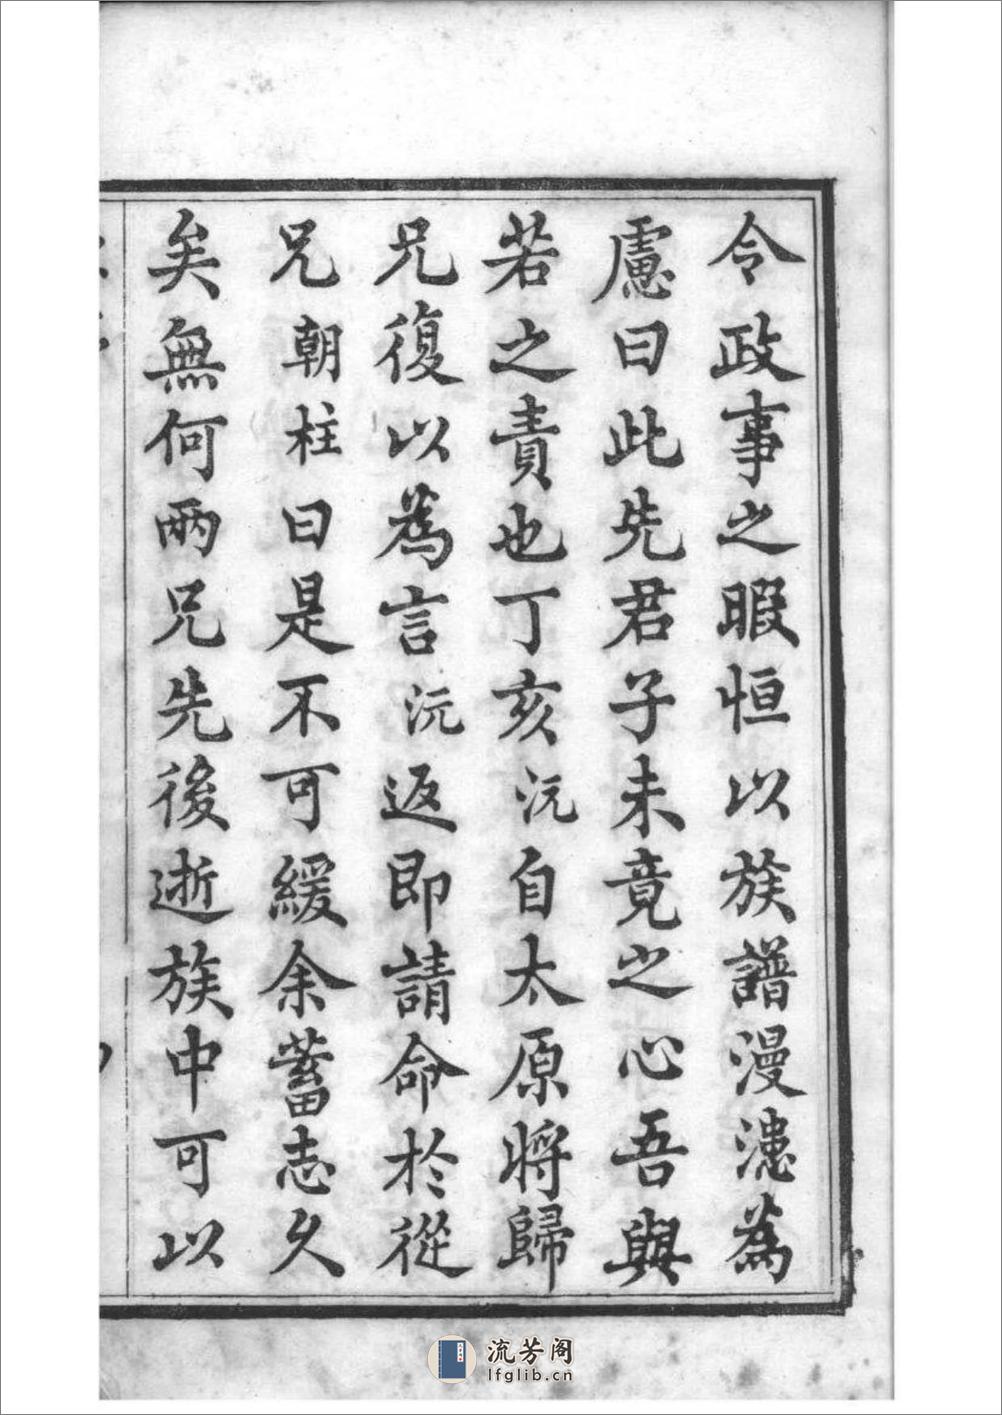 令政事之暇恒以族譜漫漶為
慮曰此先君子未竟之心吾與
若之責也丁亥沅自太原將歸
兄復以為言沅返即請命於從
兄朝柱曰是不可緩余蓄志久
矣無何兩兄先後逝族中可以
流芳阁
lfglib.cn